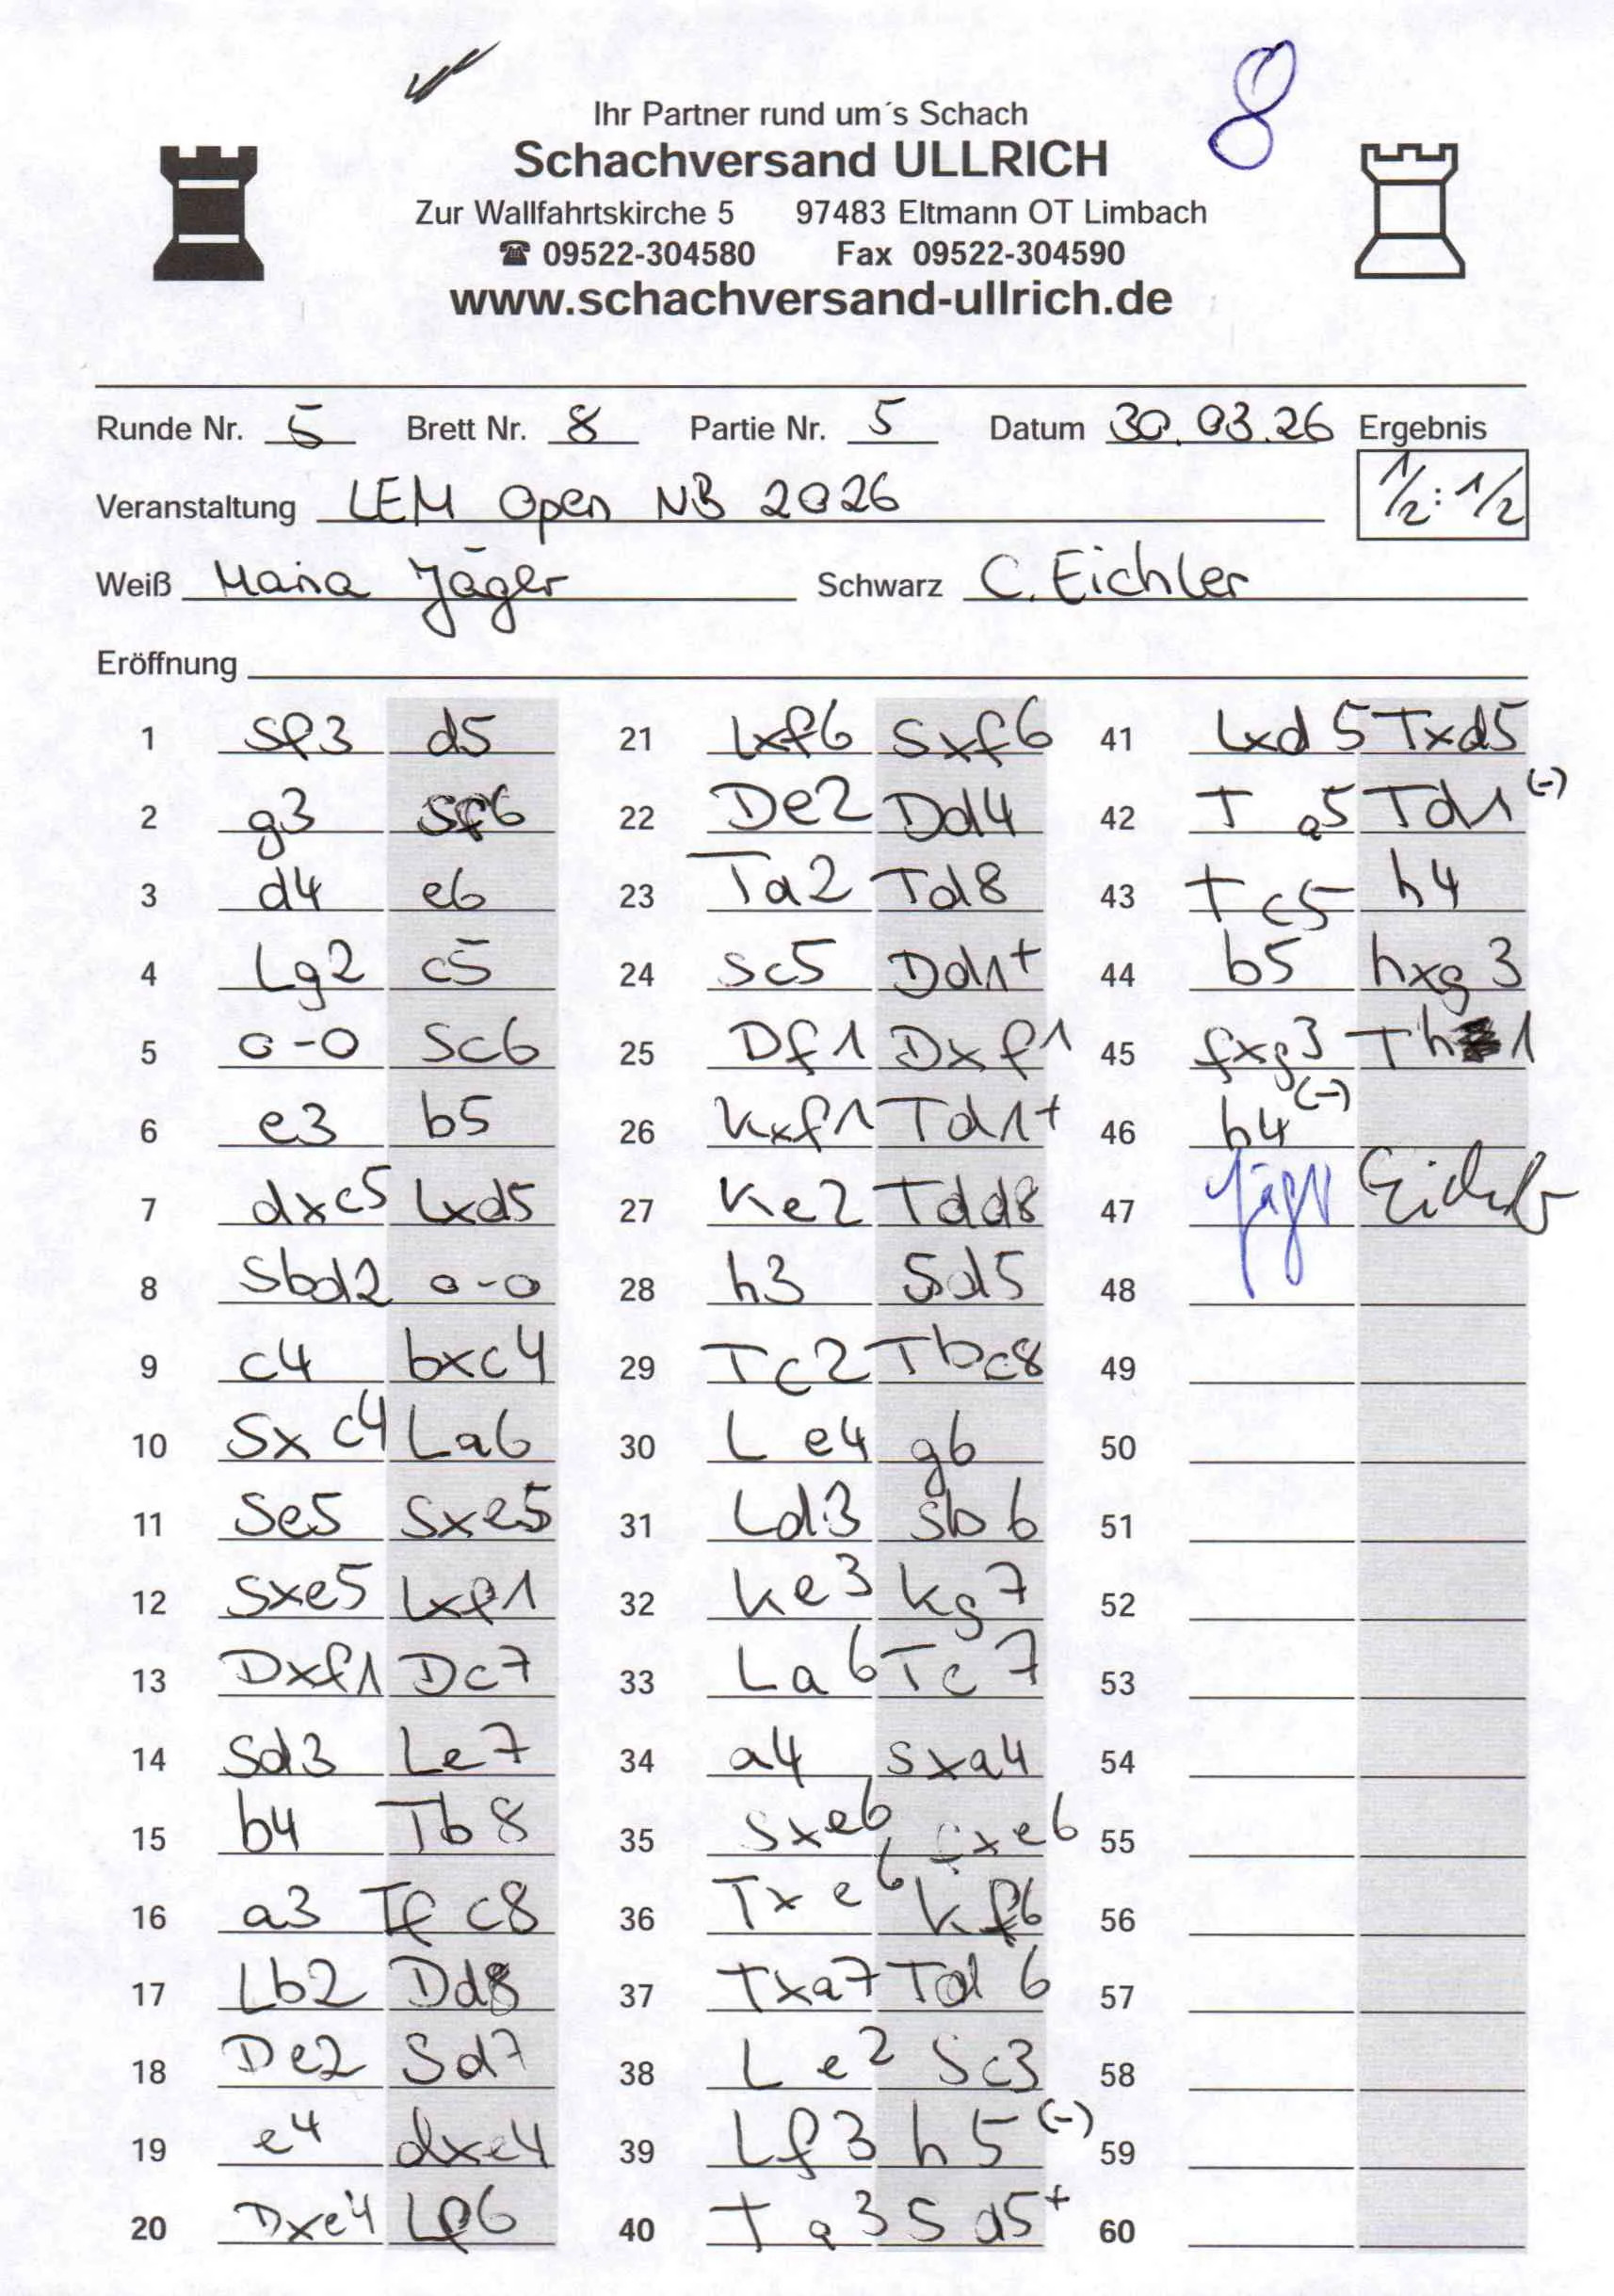 8
Ihr Partner rund um´s Schach
Schachversand ULLRICH
Zur Wallfahrtskirche 5 97483 Eltmann OT Limbach
☎ 09522-304580 Fax 09522-304590
www.schachversand-ullrich.de
Runde Nr. 5 Brett Nr. 8 Partie Nr. 5 Datum 30.03.26 Ergebnis
Veranstaltung LEM Open NB 2026 1/2:1/2
Weiß Maria Jäger Schwarz C. Eichler
Eröffnung
1 Sf3 d5 21 Lxf6 Sxf6 41 Lxd5 Txd5
2 g3 Sf6 22 De2 Dd4 42 Ta5 Td1 (-)
3 d4 e6 23 Ta2 Td8 43 Tc5 h4
4 Lg2 c5 24 Sc5 Dd1+ 44 b5 hxg3
5 0-0 Sc6 25 Df1 Dxf1 45 fxg3 Th1
6 e3 b5 26 Kxf1 Td1+ 46 h4 (-)
7 dxc5 Lxd5 27 Ke2 Tdd8 47 Jäger Eichler
8 Sbd2 0-0 28 h3 Sd5 48
9 c4 bxc4 29 Tc2 Tbc8 49
10 Sxc4 La6 30 Le4 g6 50
11 Se5 Sxe5 31 Ld3 Sb6 51
12 Sxe5 Lxf1 32 Ke3 Kg7 52
13 Dxf1 Dc7 33 La6 Tc7 53
14 Sd3 Le7 34 a4 Sxa4 54
15 b4 Tb8 35 Sxe6 fxe6 55
16 a3 Tfc8 36 Txe6 Kf6 56
17 Lb2 Dd8 37 Txa7 Td6 57
18 De2 Sd7 38 Le2 Sc3 58
19 e4 dxe4 39 Lf3 h5 (-) 59
20 Dxe4 Lf6 40 Ta3 Sd5+ 60